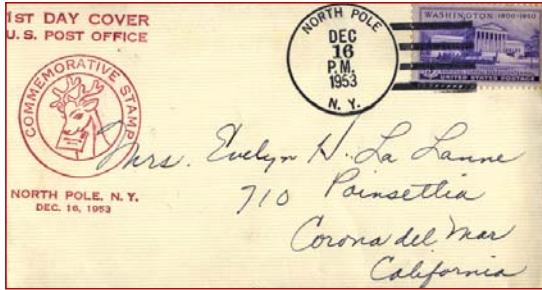 1ST DAY COVER
U.S. POST OFFICE
COMMEMORATIVE STAMP
NORTH POLE, N.Y.
DEC. 16, 1953
NORTH POLE
DEC
16
P.M.
1953
N.Y.
WASHINGTON · 1800-1950
UNITED STATES POSTAGE
Mrs. Evelyn H. La Lanne
710 Poinsettia
Corona del Mar
California